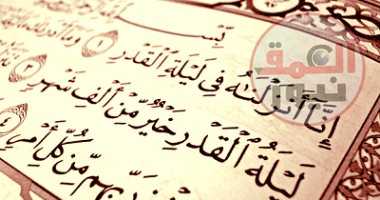 بِسْـ
إِنَّا أَنزَلْنَٰهُ فِي لَيْلَةِ ٱلْقَدْرِ ١ وَمَا
لَيْلَةُ ٱلْقَدْرِ خَيْرٌ مِّنْ أَلْفِ شَهْرٍ ٣
رَبِّهِم مِّن كُلِّ أَمْرٍ ٤
العمق
نيوز